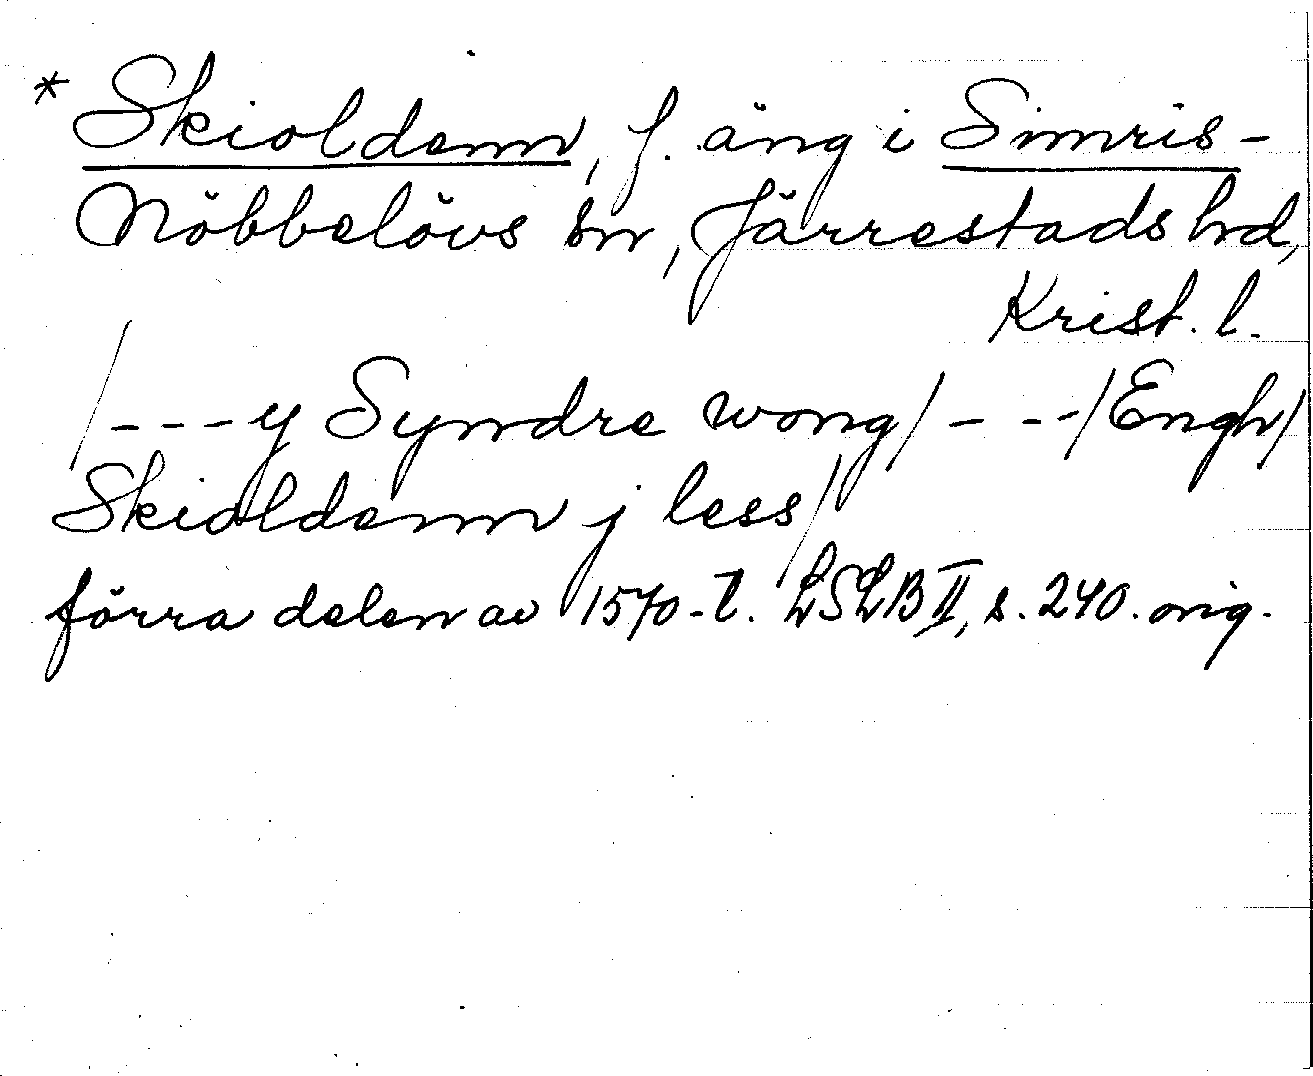 * Skioldenn, f. äng i Simris-
Nöbbelövs sn, Järrestads hrd,
Krist. l.
/---y Syndre wong/ ---/Engh/
Skioldenn j less/
förra delen av 1570-t. LSLB II, s. 240. orig.